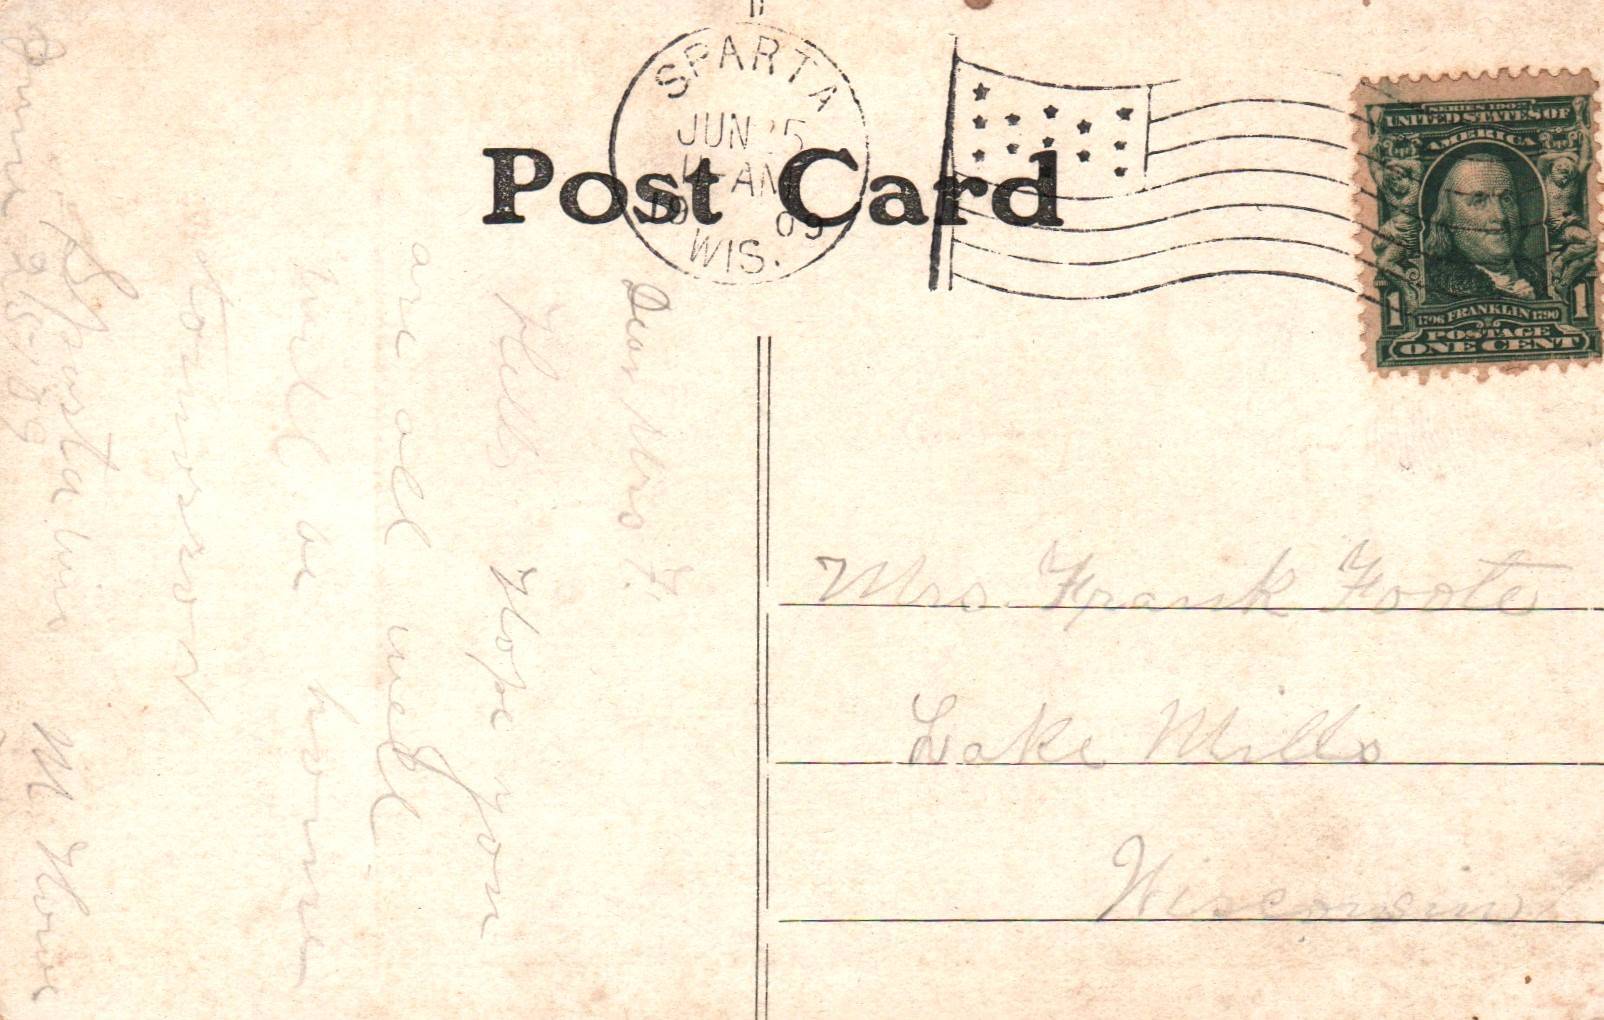 Post Card
SPARTA
JUN 25
AM
19 09
WIS.
SERIES 1902
UNITED STATES OF
AMERICA
1 1
1706 FRANKLIN 1790
POSTAGE
ONE CENT
Mrs Frank Foote
Lake Mills
Wisconsin
Dear Mrs F.
Hello Hope you
are all well
will be home
tomorrow
Sparta Wis
June 25-1909
M. Howe